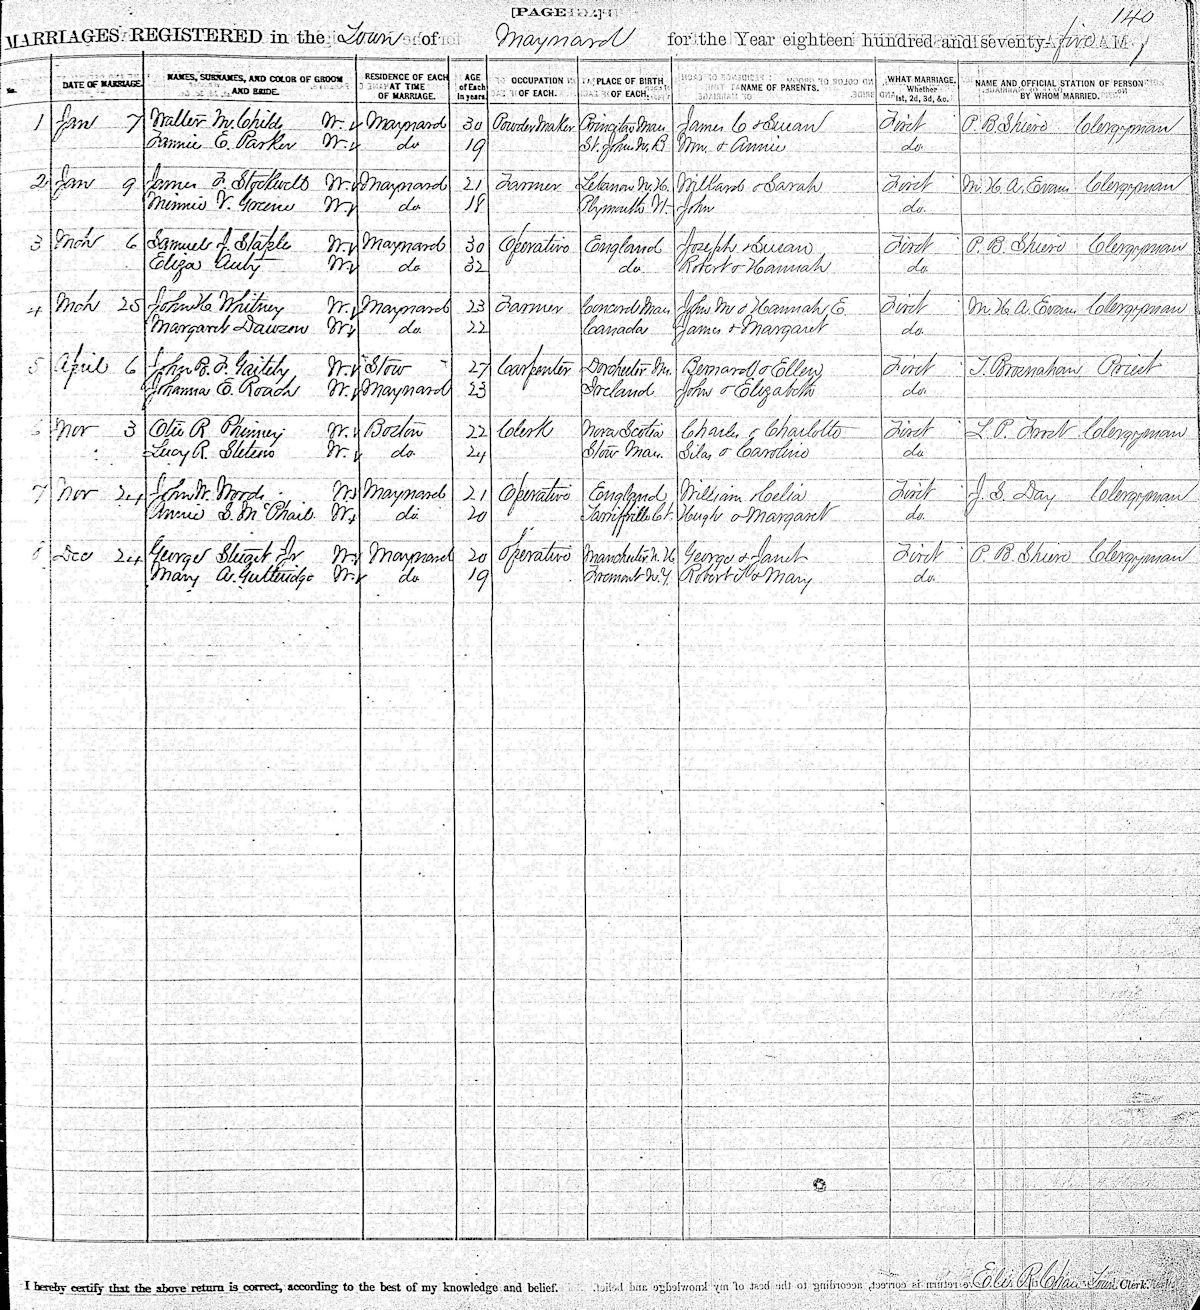 [PAGE
140
MARRIAGES REGISTERED in the Town of Maynard for the Year eighteen hundred and seventy-five
No. DATE OF MARRIAGE. NAMES, SURNAMES, AND COLOR OF GROOM AND BRIDE. RESIDENCE OF EACH AT TIME OF MARRIAGE. AGE of Each in years. OCCUPATION OF EACH. PLACE OF BIRTH OF EACH. NAME OF PARENTS. WHAT MARRIAGE, Whether 1st, 2d, 3d, &c. NAME AND OFFICIAL STATION OF PERSON BY WHOM MARRIED.
1 Jan 7 Walter M. Childs W. Maynard 30 Powder Maker Mass James C & Susan First P. B. Clergyman
Fannie E. Parker W. do 19 St. John N. B Wm. & Annie do.
2 Jan 9 James F. Stockwell W. Maynard 21 Farmer Lebanon N. H. Willard & Sarah First M. H. A. Evans Clergyman
Minnie V. Greene W. do. 18 Plymouth Vt. John do.
3 Mch 6 Samuel J. Staple W. Maynard 30 Operative England Joseph & Susan First P. B. Clergyman
Eliza W. do 32 do. Robert & Hannah do.
4 Mch 25 John H. Whitney W. Maynard 23 Farmer Concord Mass John M & Hannah E. First M. H. A. Evans Clergyman
Margaret Dawson W. do. 22 Canada James & Margaret do.
5 April 6 John B. F. W. Stow 27 Carpenter Dorchester Ms. Bernard & Ellen First T. Brosnahan Priest
Johanna E. Roach W. Maynard 23 Ireland John & Elizabeth do.
6 Nov 3 Otis R Phinney W. Boston 22 Clerk Nova Scotia Charles & Charlotte First L. P. Frost Clergyman
Lucy R. W. do. 24 Stow Mass. Silas & Caroline do
7 Nov 24 John W. Woods W. Maynard 21 Operative England William & Celia First J. S. Day Clergyman
Annie S. McPhail W. do. 20 Tariffville Ct. Hugh & Margaret do.
8 Dec 24 George Jr W. Maynard 20 Operative Manchester N. H George & Janet First P. B. Clergyman
Mary A. Gutteridge W. do. 19 Fremont N. Y. Robert & Mary do.
I hereby certify that the above return is correct, according to the best of my knowledge and belief. Town Clerk.